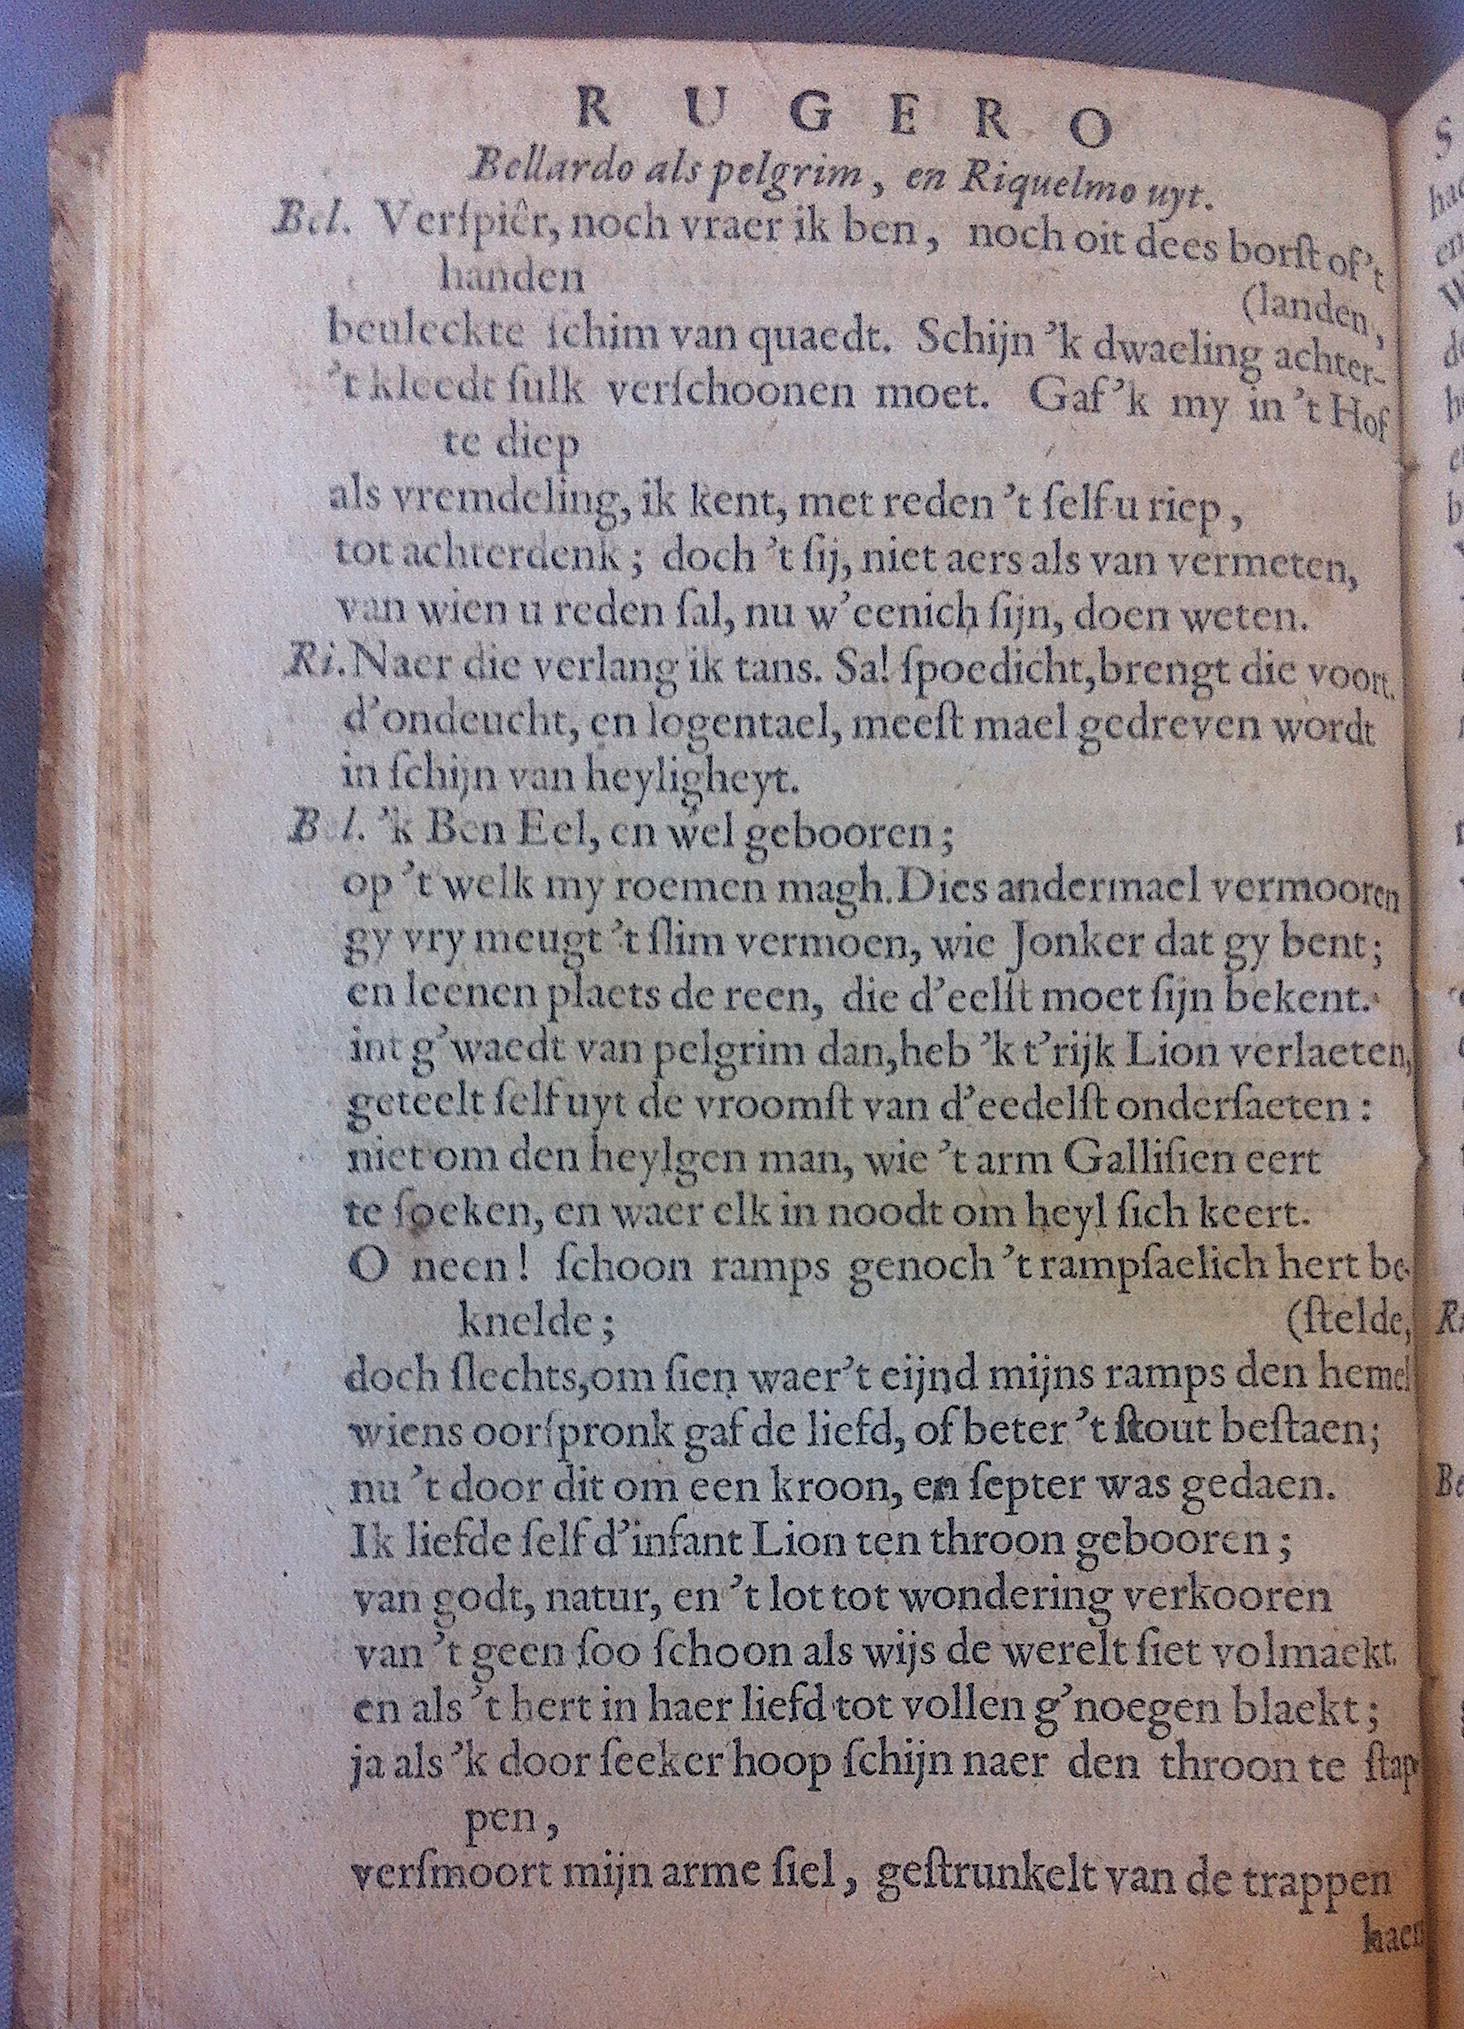 R U G E R O
Bellardo als pelgrim, en Riquelmo uyt.
Bel. Verſpiêr, noch vraer ik ben, noch oit dees borſt of 't
handen
(landen,
beuleckte ſchim van quaedt. Schijn 'k dwaeling achter-
't kleedt ſulk verſchoonen moet. Gaf 'k my in 't Hof
te diep
als vremdeling, ik kent, met reden 't ſelf u riep,
tot achterdenk; doch 't ſij, niet aers als van vermeten,
van wien u reden ſal, nu w'eenich ſijn, doen weten.
Ri. Naer die verlang ik tans. Sa! ſpoedicht, brengt die voort.
d'ondeucht, en logentael, meeſt mael gedreven wordt
in ſchijn van heyligheyt.
Bel. 'k Ben Eel, en wel gebooren;
op 't welk my roemen magh. Dies andermael vermooren
gy vry meugt 't ſlim vermoen, wie Jonker dat gy bent;
en leenen plaets de reen, die d'eelſt moet ſijn bekent.
int g'waedt van pelgrim dan, heb 'k t'rijk Lion verlaeten,
geteelt ſelf uyt de vroomſt van d'eedelſt onderſaeten:
niet om den heylgen man, wie 't arm Galliſien eert
te ſoeken, en waer elk in noodt om heyl ſich keert.
O neen! ſchoon ramps genoch 't rampſaelich hert be-
knelde; (ſtelde,
doch ſlechts, om ſien waer't eijnd mijns ramps den hemel
wiens oorſpronk gaf de liefd, of beter 't ſtout beſtaen;
nu 't door dit om een kroon, en ſepter was gedaen.
Ik liefde ſelf d'infant Lion ten throon gebooren;
van godt, natur, en 't lot tot wondering verkooren
van 't geen ſoo ſchoon als wijs de werelt ſiet volmaekt.
en als 't hert in haer liefd tot vollen g'noegen blaekt;
ja als 'k door ſeeker hoop ſchijn naer den throon te ſtap
pen,
verſmoort mijn arme ſiel, geſtrunkelt van de trappen
haer